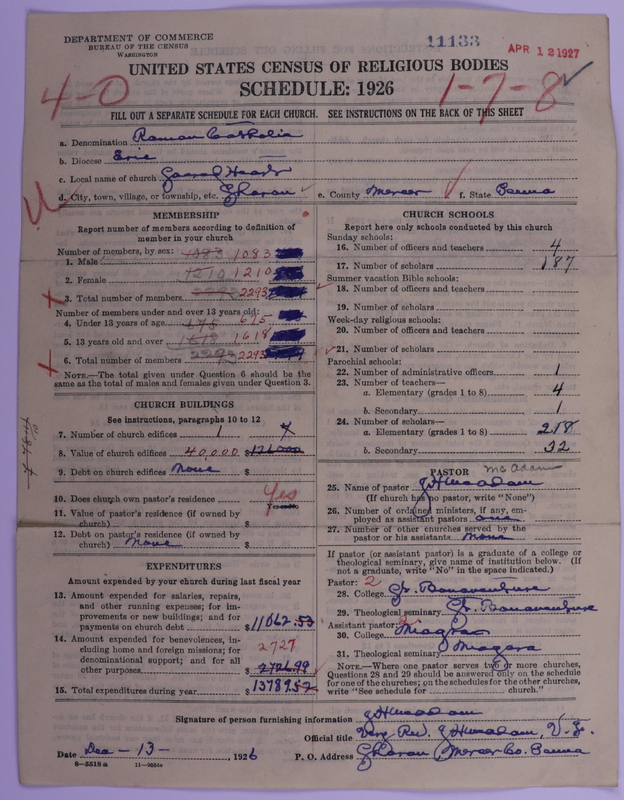 DEPARTMENT OF COMMERCE
BUREAU OF THE CENSUS
WASHINGTON
11133
APR 12 1927
UNITED STATES CENSUS OF RELIGIOUS BODIES
SCHEDULE: 1926
4-0
1-7-8
FILL OUT A SEPARATE SCHEDULE FOR EACH CHURCH. SEE INSTRUCTIONS ON THE BACK OF THIS SHEET
a. Denomination Roman Catholic
b. Diocese Erie
c. Local name of church Sacred Heart
d. City, town, village, or township, etc. Sharon e. County Mercer f. State Penna
MEMBERSHIP
Report number of members according to definition of
member in your church
Number of members, by sex:
1. Male 1083 1083
2. Female 1210 1210
3. Total number of members 2293 2293
Number of members under and over 13 years old:
4. Under 13 years of age 675
5. 13 years old and over 1618
6. Total number of members 2293 2293
NOTE.—The total given under Question 6 should be the
same as the total of males and females given under Question 3.
CHURCH BUILDINGS
See instructions, paragraphs 10 to 12
7. Number of church edifices 1
8. Value of church edifices 40,000 $
9. Debt on church edifices None $
10. Does church own pastor's residence Yes
11. Value of pastor's residence (if owned by
church) $
12. Debt on pastor's residence (if owned by
church) None $
EXPENDITURES
Amount expended by your church during last fiscal year
13. Amount expended for salaries, repairs,
and other running expenses; for im-
provements or new buildings; and for
payments on church debt $11062.53
14. Amount expended for benevolences, in-
cluding home and foreign missions; for
denominational support; and for all
other purposes 2727 $2726.99
15. Total expenditures during year $13789.52
CHURCH SCHOOLS
Report here only schools conducted by this church
Sunday schools:
16. Number of officers and teachers 4
17. Number of scholars 187
Summer vacation Bible schools:
18. Number of officers and teachers
19. Number of scholars
Week-day religious schools:
20. Number of officers and teachers
21. Number of scholars
Parochial schools:
22. Number of administrative officers 1
23. Number of teachers—
a. Elementary (grades 1 to 8) 4
b. Secondary 1
24. Number of scholars—
a. Elementary (grades 1 to 8) 218
b. Secondary 32
PASTOR McAdam
25. Name of pastor J H McAdam
(If church has no pastor, write "None")
26. Number of ordained ministers, if any, em-
ployed as assistant pastors one
27. Number of other churches served by the
pastor or his assistants None
If pastor (or assistant pastor) is a graduate of a college or
theological seminary, give name of institution below. (If
not a graduate, write "No" in the space indicated.)
Pastor: 2
28. College St. Bonaventure
29. Theological seminary St. Bonaventure
Assistant pastor:
30. College Niagra
31. Theological seminary Niagara
NOTE.—Where one pastor serves two or more churches,
Questions 28 and 29 should be answered only on the schedule
for one of the churches; on the schedules for the other churches,
write "See schedule for church."
Signature of person furnishing information J H McAdam
Official title Very Rev. J H McAdam, V. F.
Date Dec - 13 - , 1926 P. O. Address Sharon Mercer Co. Penna
8—5518 a